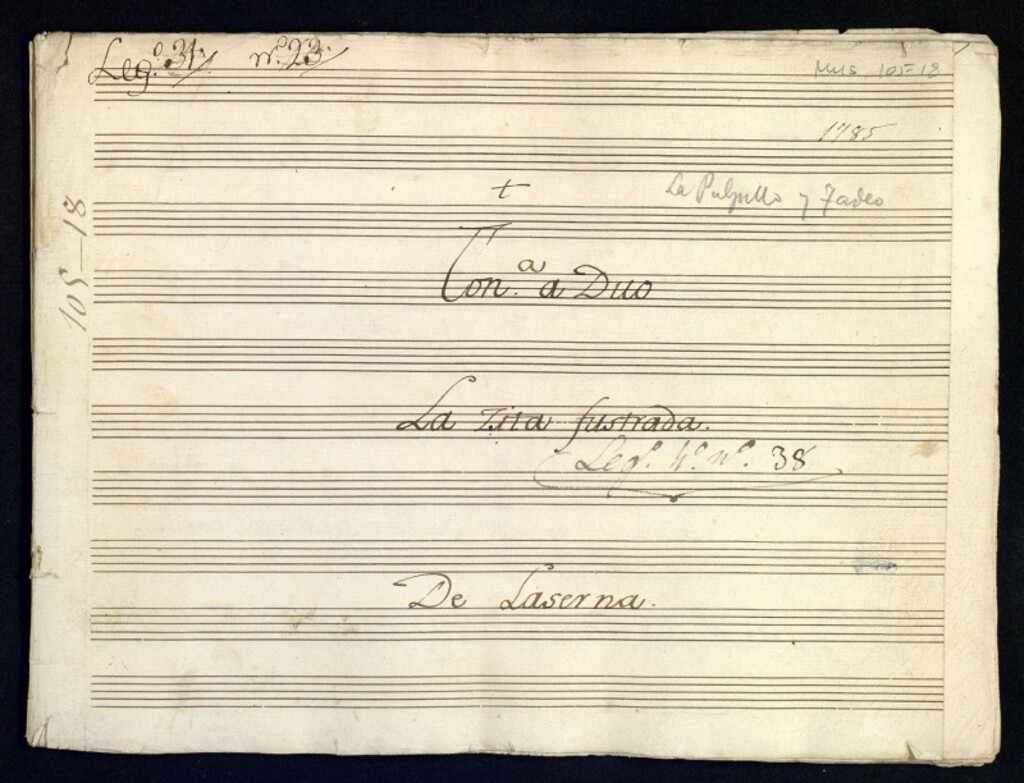 Leg.º 31. nº. 23.
Mus 105-18
1785
105-18
+
La Pulpillo y Tadeo
Ton.ª a Duo
La Zita fustrada.
Leg.º 4.º nº. 38
De Laserna.